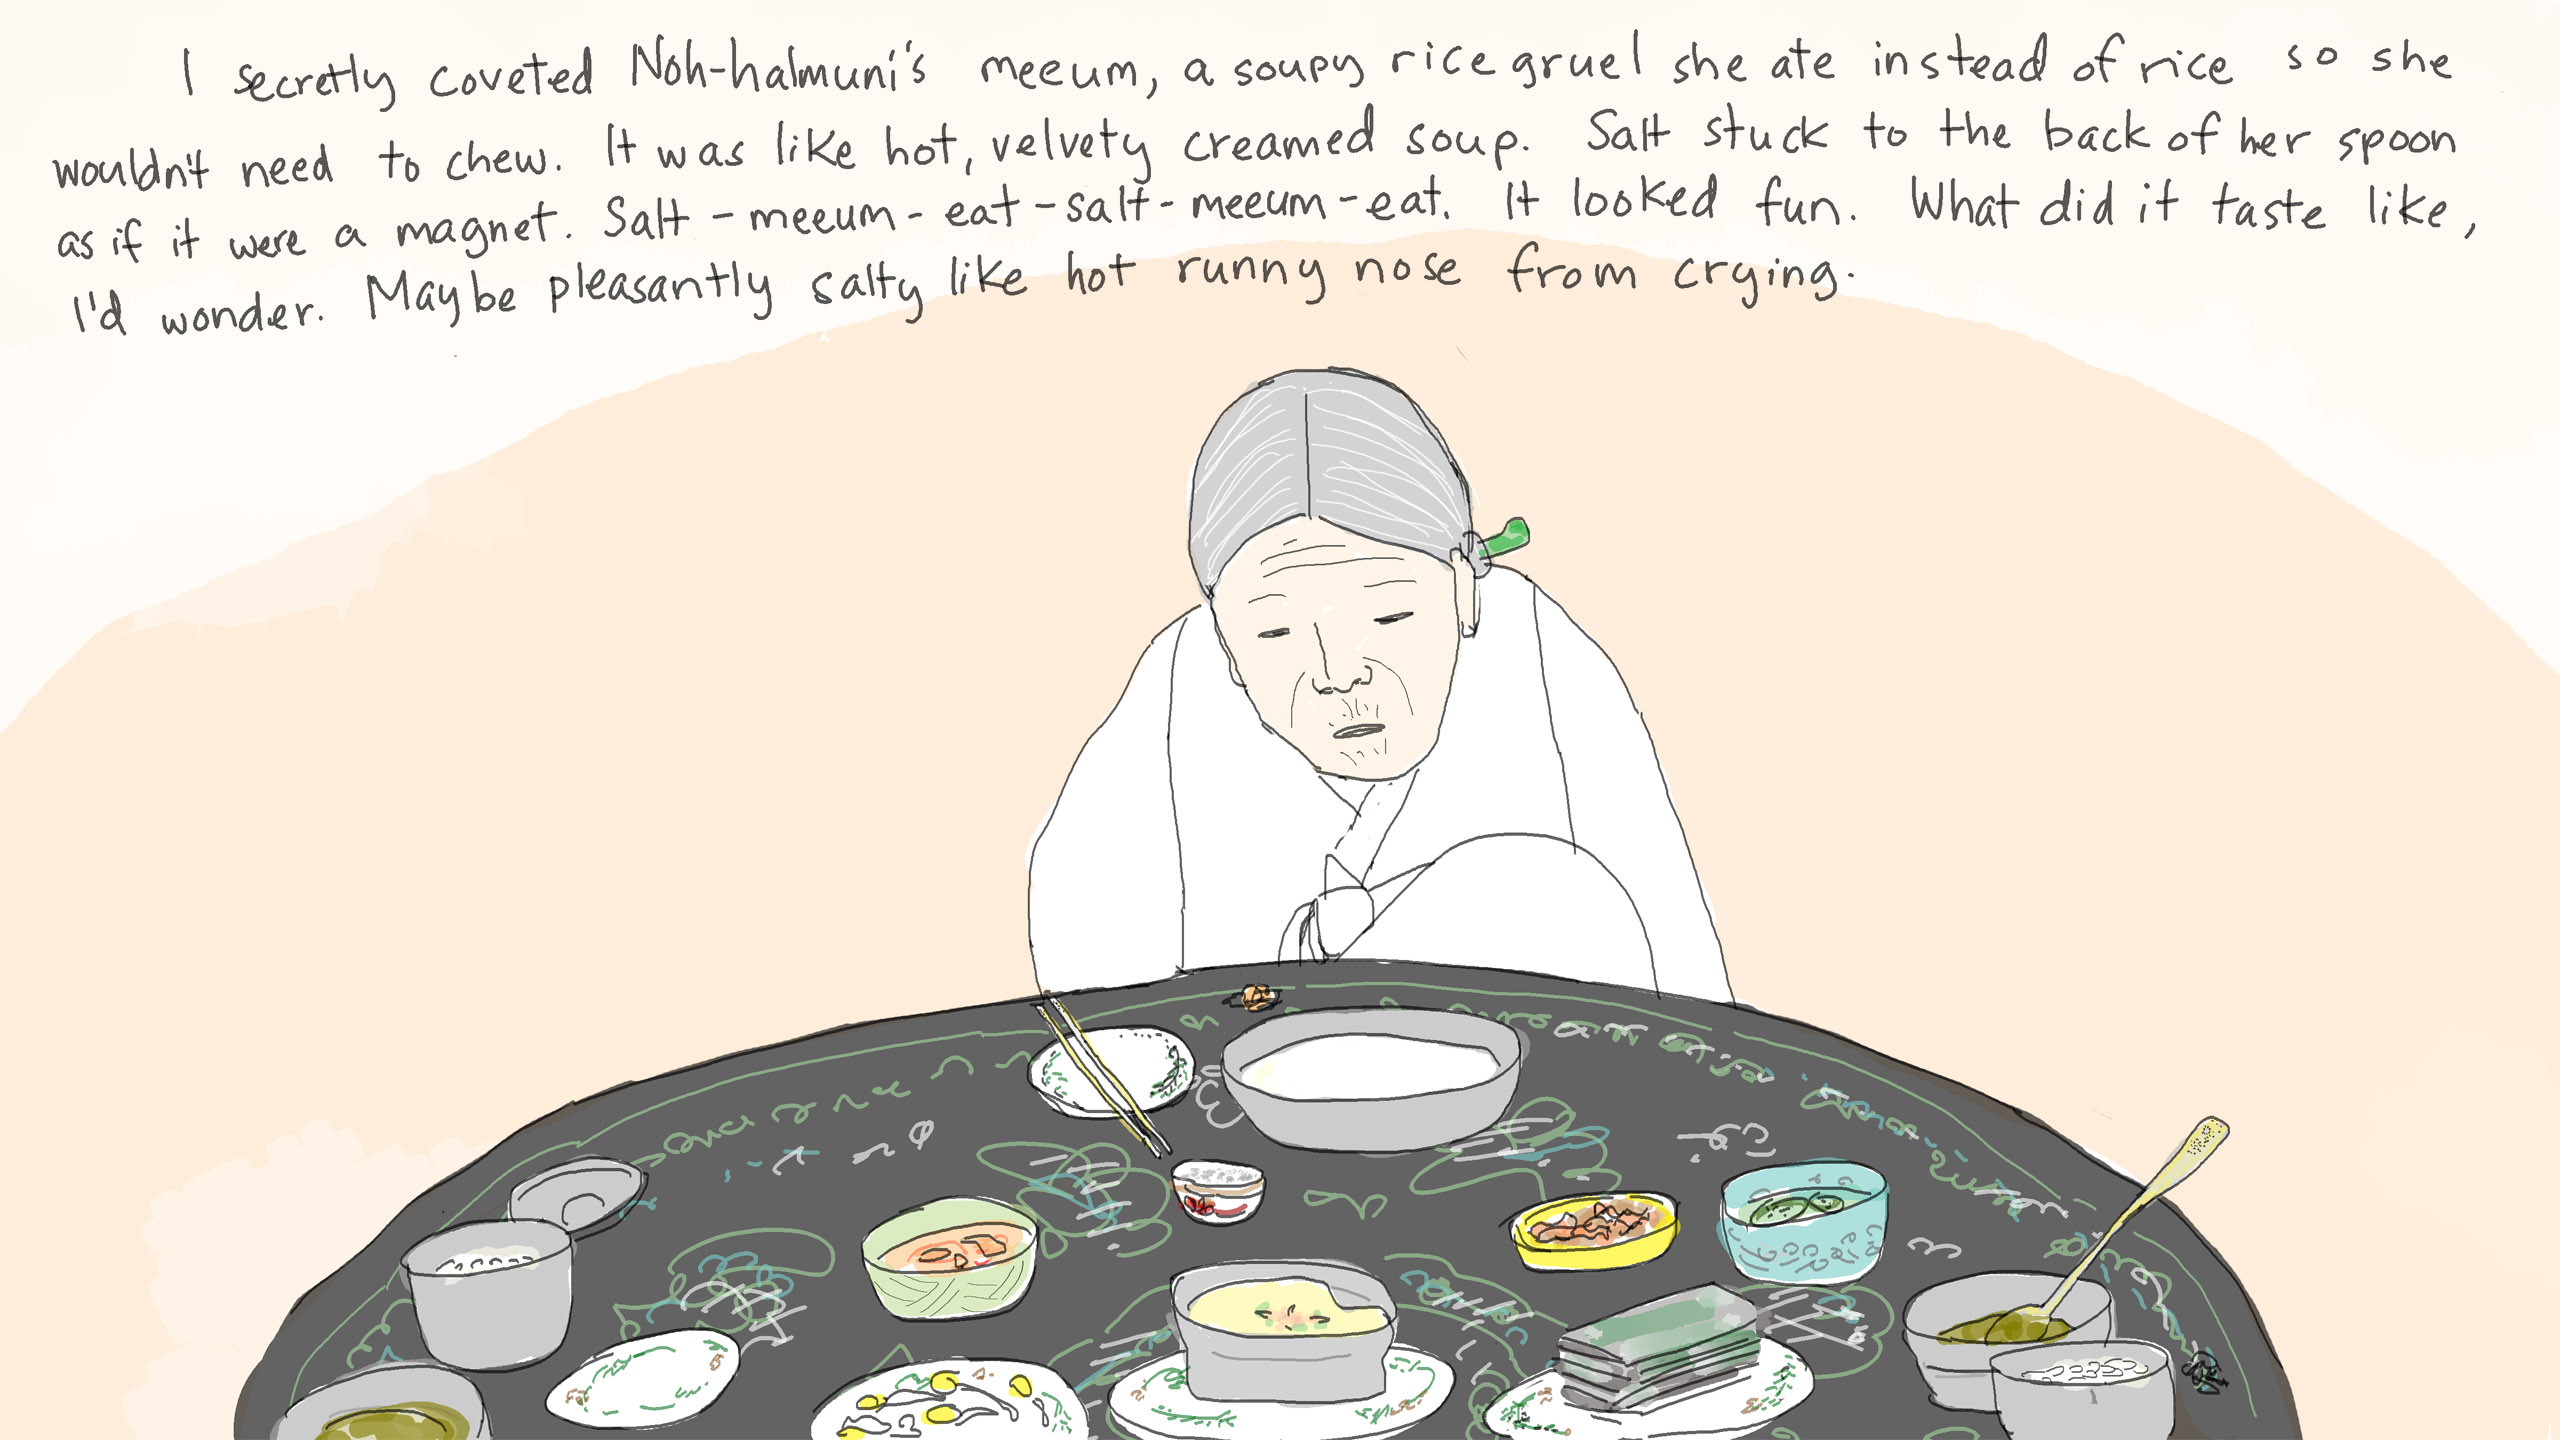 I secretly coveted Noh-halmuni's meeum, a soupy rice gruel she ate instead of rice so she
wouldn't need to chew. It was like hot, velvety creamed soup. Salt stuck to the back of her spoon
as if it were a magnet. Salt-meeum-eat-salt-meeum-eat. It looked fun. What did it taste like,
I'd wonder. Maybe pleasantly salty like hot runny nose from crying.